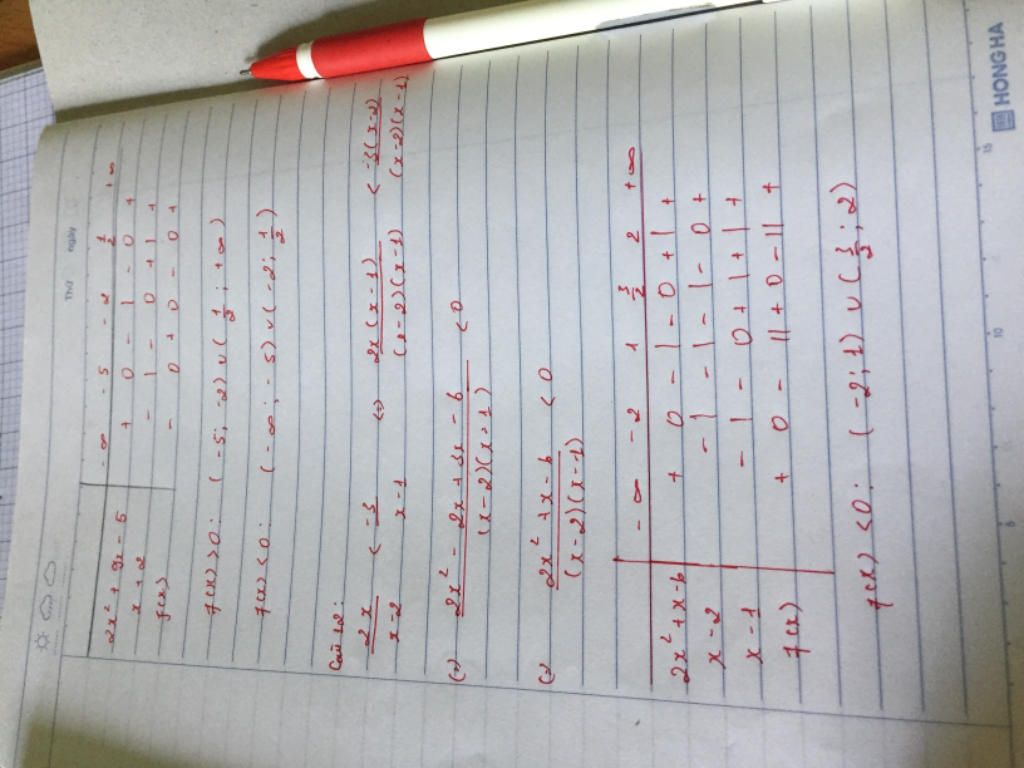 Thứ ngày
-∞ -5 -2 1/2 +∞
2x² + 9x - 5 + 0 - | - 0 +
x + 2 - | - 0 + | +
f(x) - 0 + 0 - 0 +
f(x) > 0: (-5; -2) ∪ (1/2; +∞)
f(x) < 0: (-∞; -5) ∪ (-2; 1/2)
Câu 2:
2x/(x-2) < -3/(x-1) (=) 2x(x-1)/(x-2)(x-1) < -3(x-2)/(x-2)(x-1)
(=) (2x² - 2x + 3x - 6)/(x-2)(x-1) < 0
(=) (2x² + x - 6)/(x-2)(x-1) < 0
-∞ -2 1 3/2 2 +∞
2x² + x - 6 + 0 - | - 0 + | +
x - 2 - | - | - | - 0 +
x - 1 - | - 0 + | + | +
f(x) + 0 - || + 0 - || +
f(x) < 0: (-2; 1) ∪ (3/2; 2)
HONG HA